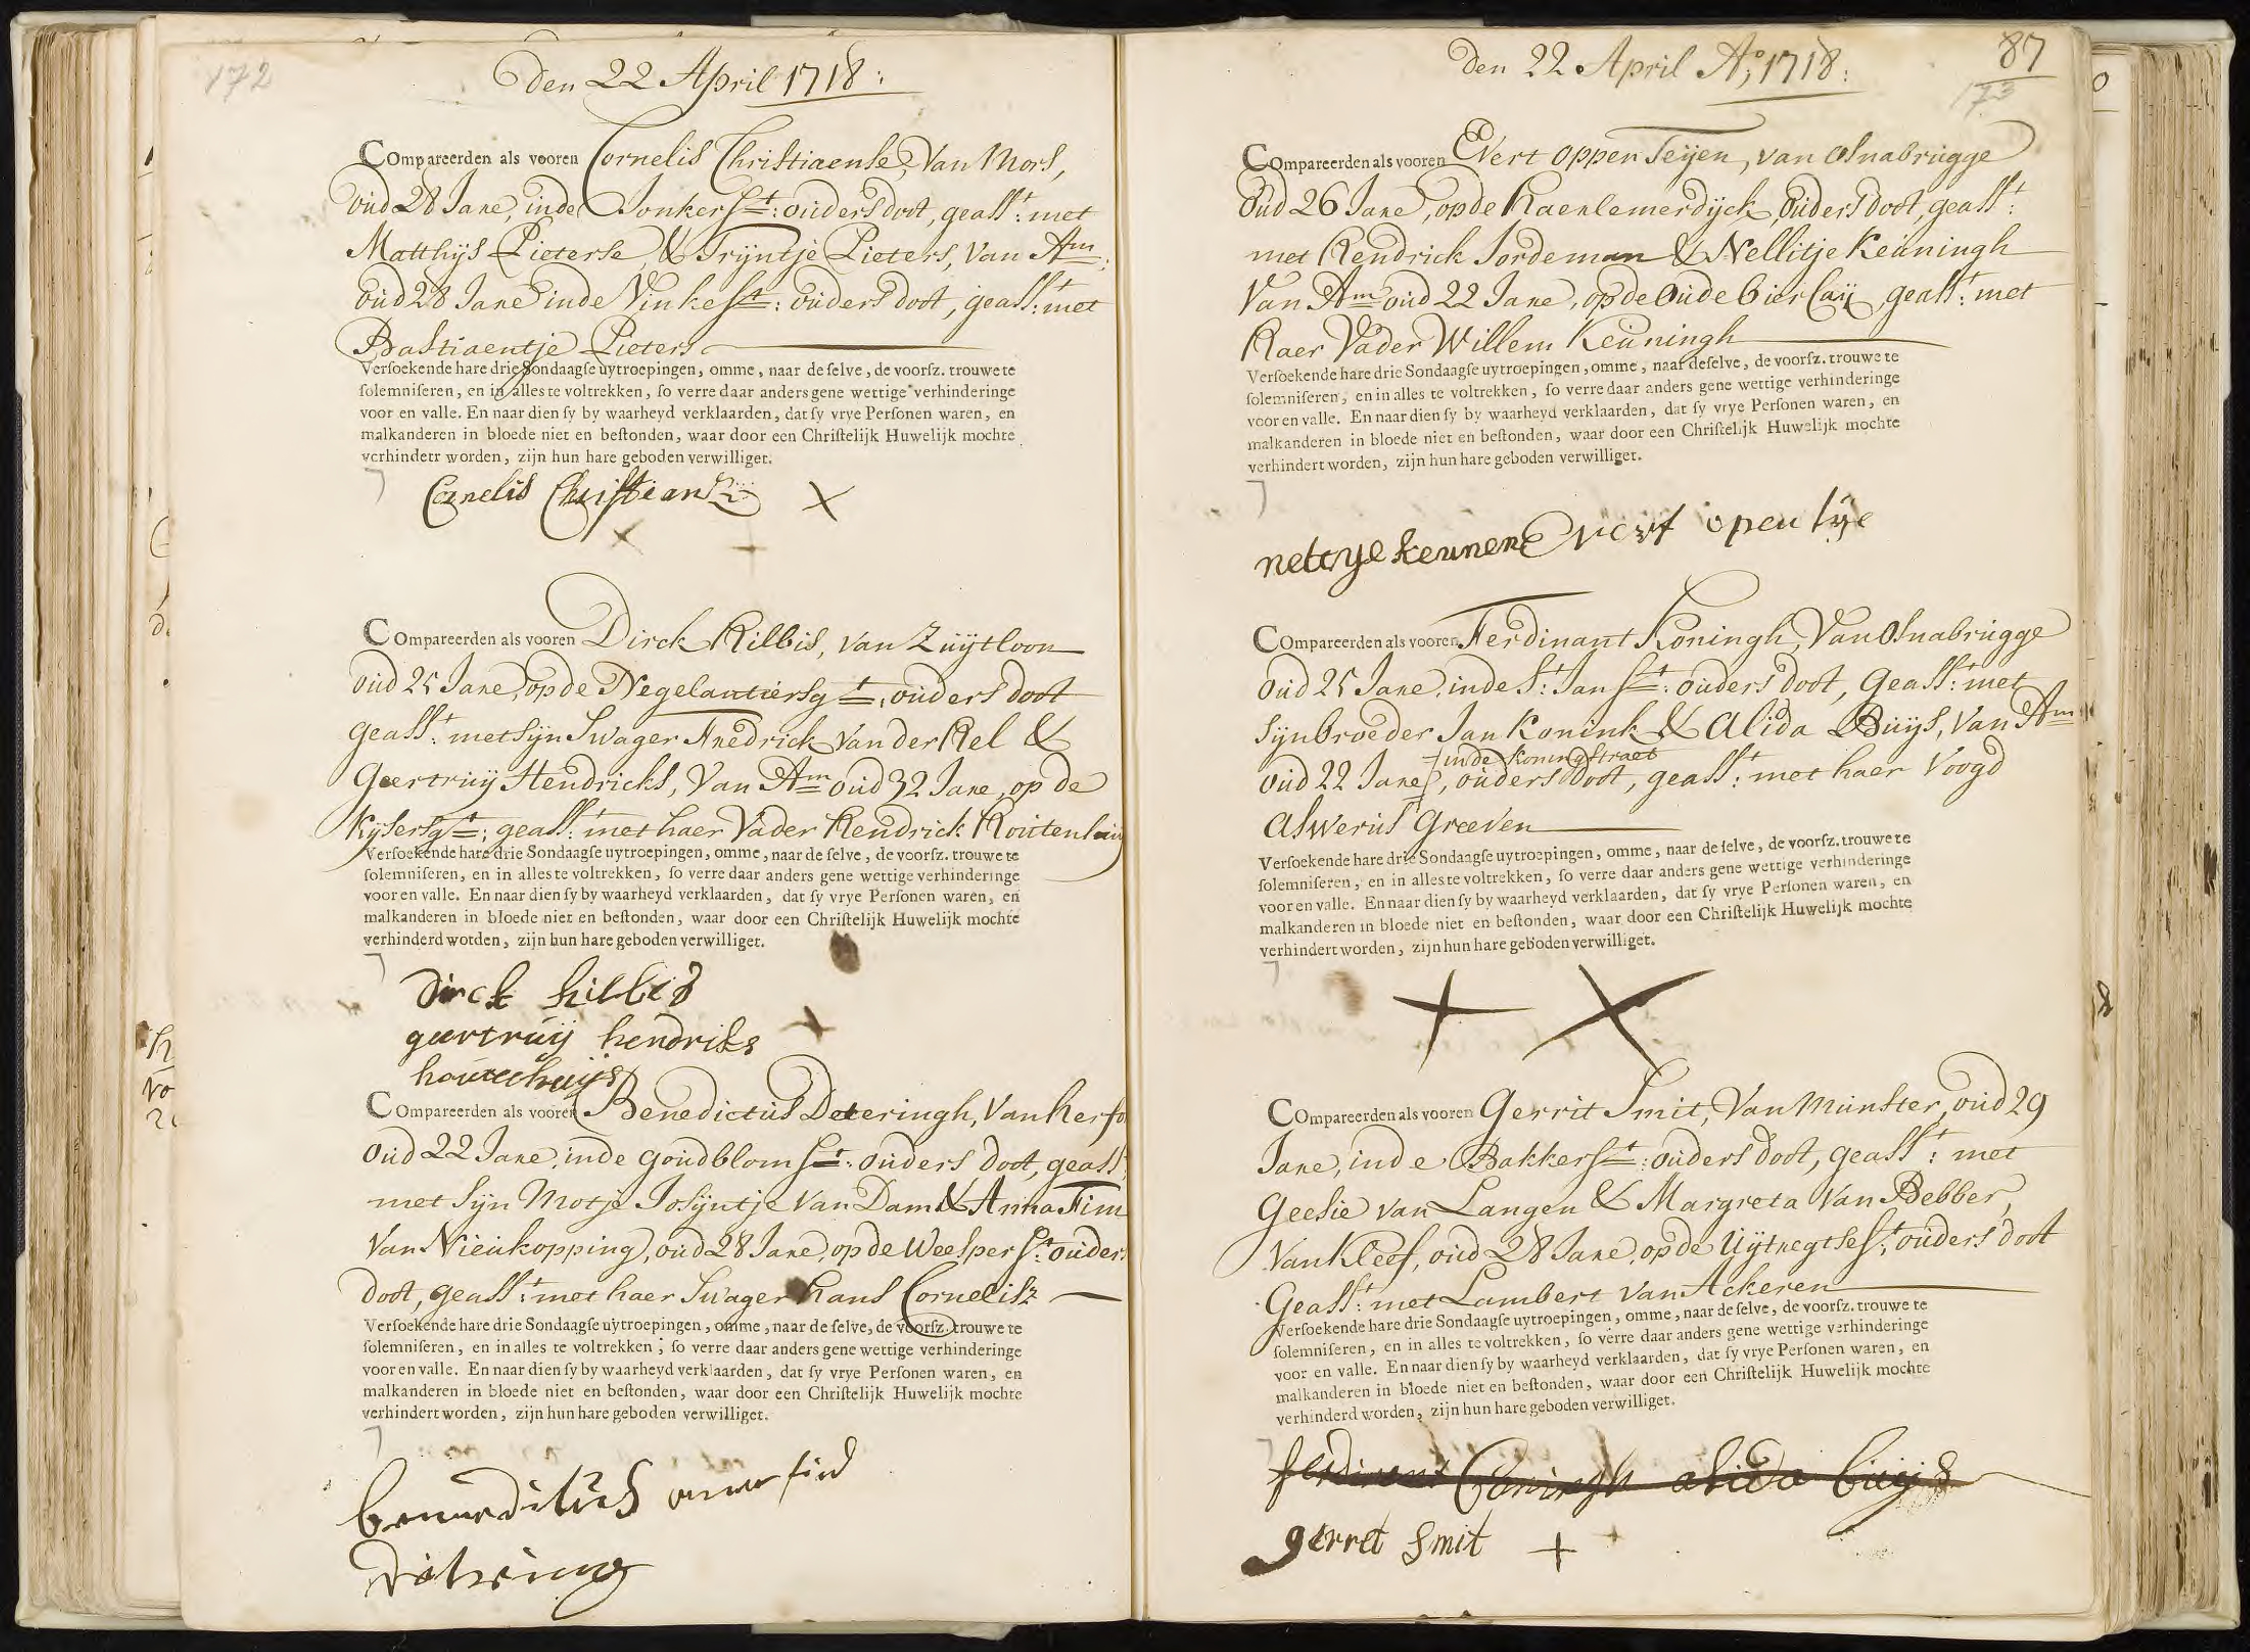 172
Den 22 April 1718:
Compareerden als vooren Cornelis Christiaense, Van Mors,
oud 28 Jare, inde Jonkerst: ouders doot, geasst: met
Matthijs Pieterse & Trijntje Pieters, Van Am:
oud 28 Jare inde Vinkest: ouders doot, geasst: met
Bastiaentje Pieters
Versoekende hare drie Sondaagse uytroepingen, omme, naar de selve, de voorsz. trouwe te
solemniseren, en in alles te voltrekken, so verre daar anders gene wettige verhinderinge
voor en valle. En naar dien sy by waarheyd verklaarden, dat sy vrye Personen waren, en
malkanderen in bloede niet en bestonden, waar door een Christelijk Huwelijk mochte
verhindert worden, zijn hun hare geboden verwilliget.
Cornelis Christians X
Compareerden als vooren Dirck Hilbis, van Zuijtloon
oud 25 Jare, op de Negelantiersgt: ouders doot
geasst: met sijn Swager Fredrick van der Hel &
Geertruij Hendricks, Van Am oud 32 Jare, op de
Kijsersgt: geasst: met haer Vader Hendrick Houtenhuijs
Versoekende hare drie Sondaagse uytroepingen, omme, naar de selve, de voorsz. trouwe te
solemniseren, en in alles te voltrekken, so verre daar anders gene wettige verhinderinge
voor en valle. En naar dien sy by waarheyd verklaarden, dat sy vrye Personen waren, en
malkanderen in bloede niet en bestonden, waar door een Christelijk Huwelijk mochte
verhinderd worden, zijn hun hare geboden verwilliget.
Dirck hilbis
geertruij hendriks
Compareerden als vooren Benedictus Deteringh, Van herfo
oud 22 Jare, inde Goudblomst: ouders doot, geasst
met sijn Motje Josijntje van Dam & Anna Fim
Van Nieukopping, oud 28 Jare, op de Weesperst: ouders
doot, geasst: met haer Swager Hans Cornelisz
Versoekende hare drie Sondaagse uytroepingen, omme, naar de selve, de voorsz. trouwe te
solemniseren, en in alles te voltrekken, so verre daar anders gene wettige verhinderinge
voor en valle. En naar dien sy by waarheyd verklaarden, dat sy vrye Personen waren, en
malkanderen in bloede niet en bestonden, waar door een Christelijk Huwelijk mochte
verhindert worden, zijn hun hare geboden verwilliget.
87
173
Den 22 April Ao 1718:
Compareerden als vooren Evert oppen Teijen, van Osnabrugge
Oud 26 Jare, op de Haerlemerdijck, Ouders doot, geasst:
met Hendrick Jordeman & Nellitje Keuningh
Van Am oud 22 Jare, op de Oude Bier Caij, geasst: met
Haer Vader Willem Keuningh
Versoekende hare drie Sondaagse uytroepingen, omme, naar deselve, de voorsz. trouwe te
solemniseren, en in alles te voltrekken, so verre daar anders gene wettige verhinderinge
voor en valle. En naar dien sy by waarheyd verklaarden, dat sy vrye Personen waren, en
malkanderen in bloede niet en bestonden, waar door een Christelijk Huwelijk mochte
verhindert worden, zijn hun hare geboden verwilliget.
Evert open tije
Compareerden als vooren Ferdinant Koningh, Van Osnabrugge
Oud 25 Jare, inde St: Jansst: ouders doot, Geasst: met
sijn broeder Jan Konink & Alida Buijs, Van Am
inde koningstraet
oud 22 Jare, ouders doot, geasst: met haer Voogd
Aswerus Greeven
Versoekende hare drie Sondaagse uytroepingen, omme, naar de selve, de voorsz. trouwe te
solemniseren, en in alles te voltrekken, so verre daar anders gene wettige verhinderinge
voor en valle. En naar dien sy by waarheyd verklaarden, dat sy vrye Personen waren, en
malkanderen in bloede niet en bestonden, waar door een Christelijk Huwelijk mochte
verhindert worden, zijn hun hare geboden verwilliget.
X X
Compareerden als vooren Gerrit Smit, Van Munster, oud 29
Jare, inde Bakkerst: ouders doot, geasst: met
Geesie van Langen & Margreta Van Bebber,
Van Kleef, oud 28 Jare, op de Uijtregtsest: ouders doot
Geasst: met Lambert van Ackeren
Versoekende hare drie Sondaagse uytroepingen, omme, naar de selve, de voorsz. trouwe te
solemniseren, en in alles te voltrekken, so verre daar anders gene wettige verhinderinge
voor en valle. En naar dien sy by waarheyd verklaarden, dat sy vrye Personen waren, en
malkanderen in bloede niet en bestonden, waar door een Christelijk Huwelijk mochte
verhinderd worden, zijn hun hare geboden verwilliget.
ferdinant Coningh alida buijs
gerret Smit +